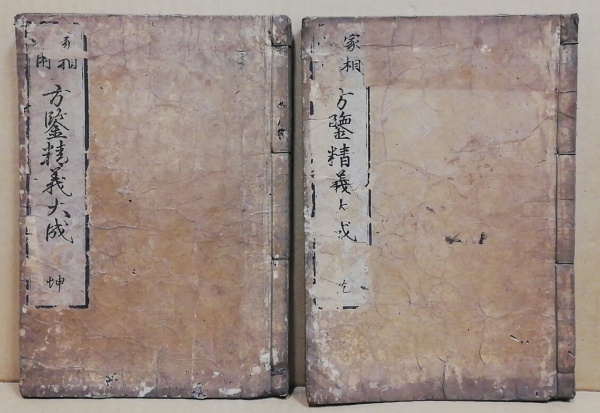 家相
方鑒精義大成
乾
家相
用
方鑒精義大成
坤